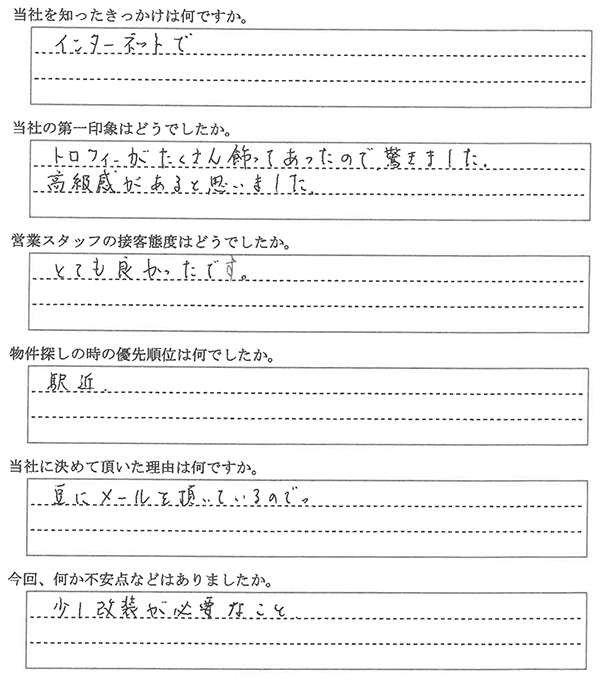 当社を知ったきっかけは何ですか。
インターネットで
当社の第一印象はどうでしたか。
トロフィーがたくさん飾ってあったので驚きました.
高級感があると思いました.
営業スタッフの接客態度はどうでしたか。
とても良かったです。
物件探しの時の優先順位は何でしたか。
駅近.
当社に決めて頂いた理由は何ですか。
豆にメールを頂いているので。
今回、何か不安点などはありましたか。
少し改装が必要なこと.